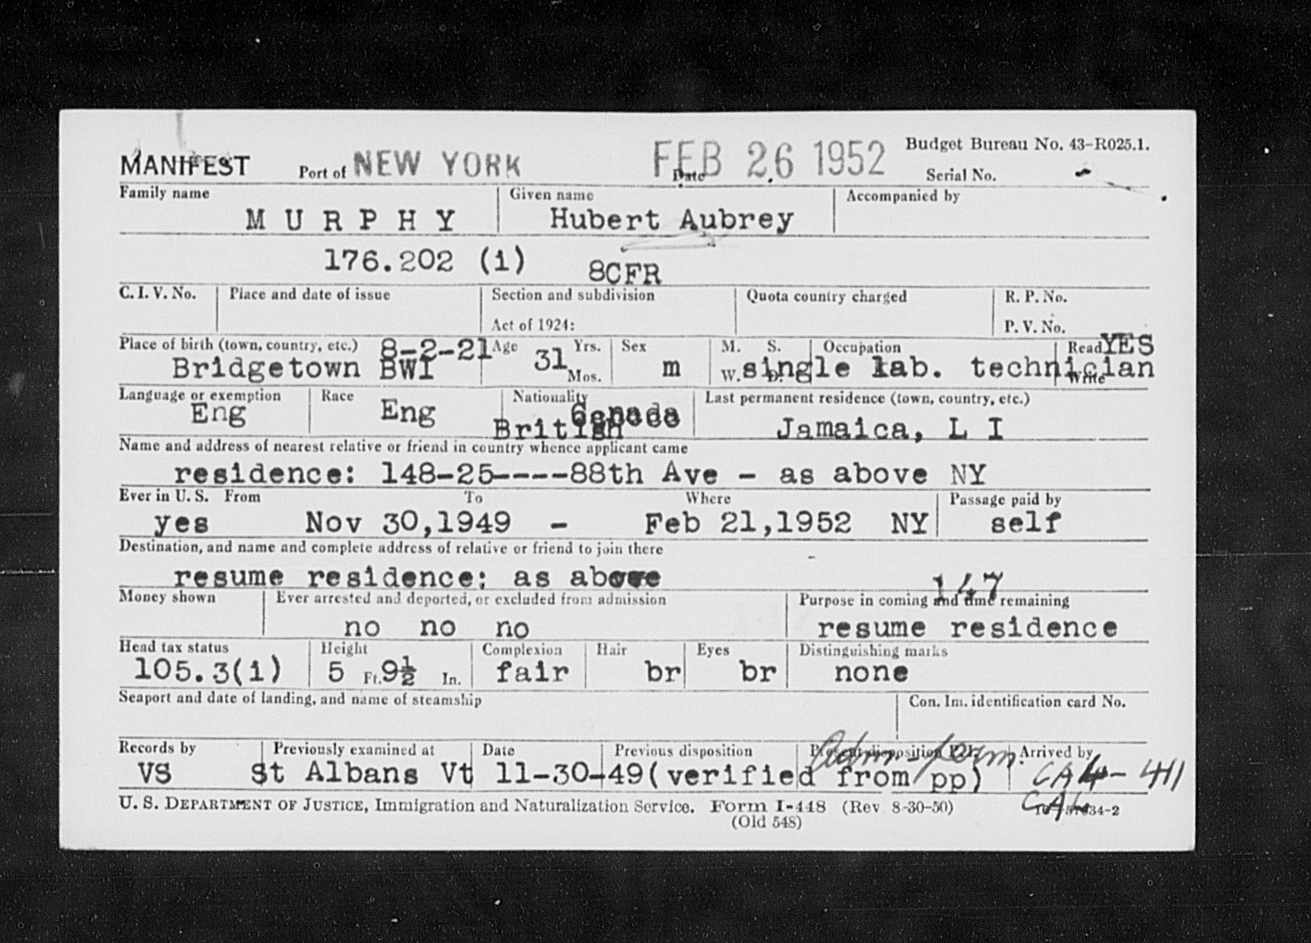 MANIFEST Port of NEW YORK Date FEB 26 1952 Budget Bureau No. 43-R025.1.
Serial No.
Family name Given name Accompanied by
MURPHY Hubert Aubrey
176.202 (1) 8CFR
C. I. V. No. Place and date of issue Section and subdivision Quota country charged R. P. No.
Act of 1924: P. V. No.
Place of birth (town, country, etc.) 8-2-21 Age 31 Yrs. Sex M. S. Occupation Read YES
Bridgetown BWI Mos. m W. D. single lab. technician Write
Language or exemption Race Nationality Last permanent residence (town, country, etc.)
Eng Eng Canada
British Jamaica, L I
Name and address of nearest relative or friend in country whence applicant came
residence: 148-25----88th Ave - as above NY
Ever in U. S. From To Where Passage paid by
yes Nov 30,1949 - Feb 21,1952 NY self
Destination, and name and complete address of relative or friend to join there
resume residence: as above
147
Money shown Ever arrested and deported, or excluded from admission Purpose in coming and time remaining
no no no resume residence
Head tax status Height Complexion Hair Eyes Distinguishing marks
105.3(1) 5 Ft. 9½ In. fair br br none
Seaport and date of landing, and name of steamship Con. Im. identification card No.
Records by Previously examined at Date Previous disposition Present disposition Adm perm Arrived by
VS St Albans Vt 11-30-49 (verified from pp) CA 4-411
U. S. DEPARTMENT OF JUSTICE, Immigration and Naturalization Service. Form I-448 (Rev 8-30-50) CAL
(Old 548)